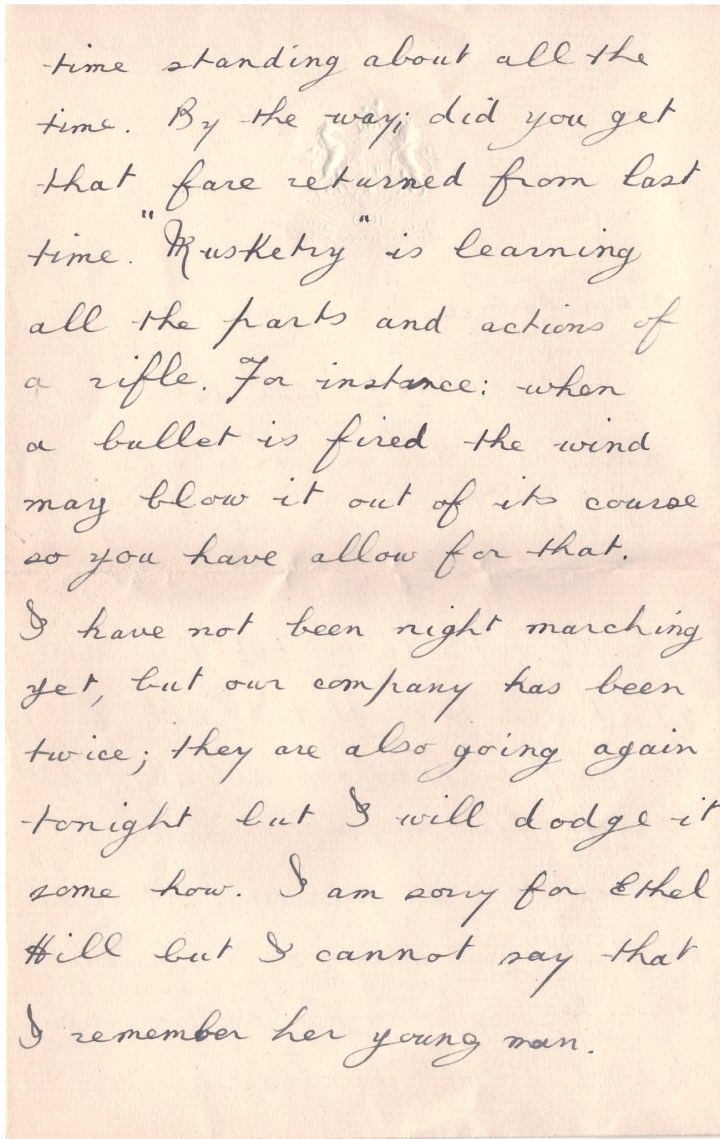 time standing about all the
time. By the way; did you get
that fare returned from last
time. "Musketry" is learning
all the parts and actions of
a rifle. For instance: when
a bullet is fired the wind
may blow it out of its course
so you have allow for that.
I have not been night marching
yet, but our company has been
twice; they are also going again
tonight but I will dodge it
some how. I am sorry for Ethel
Hill but I cannot say that
I remember her young man.